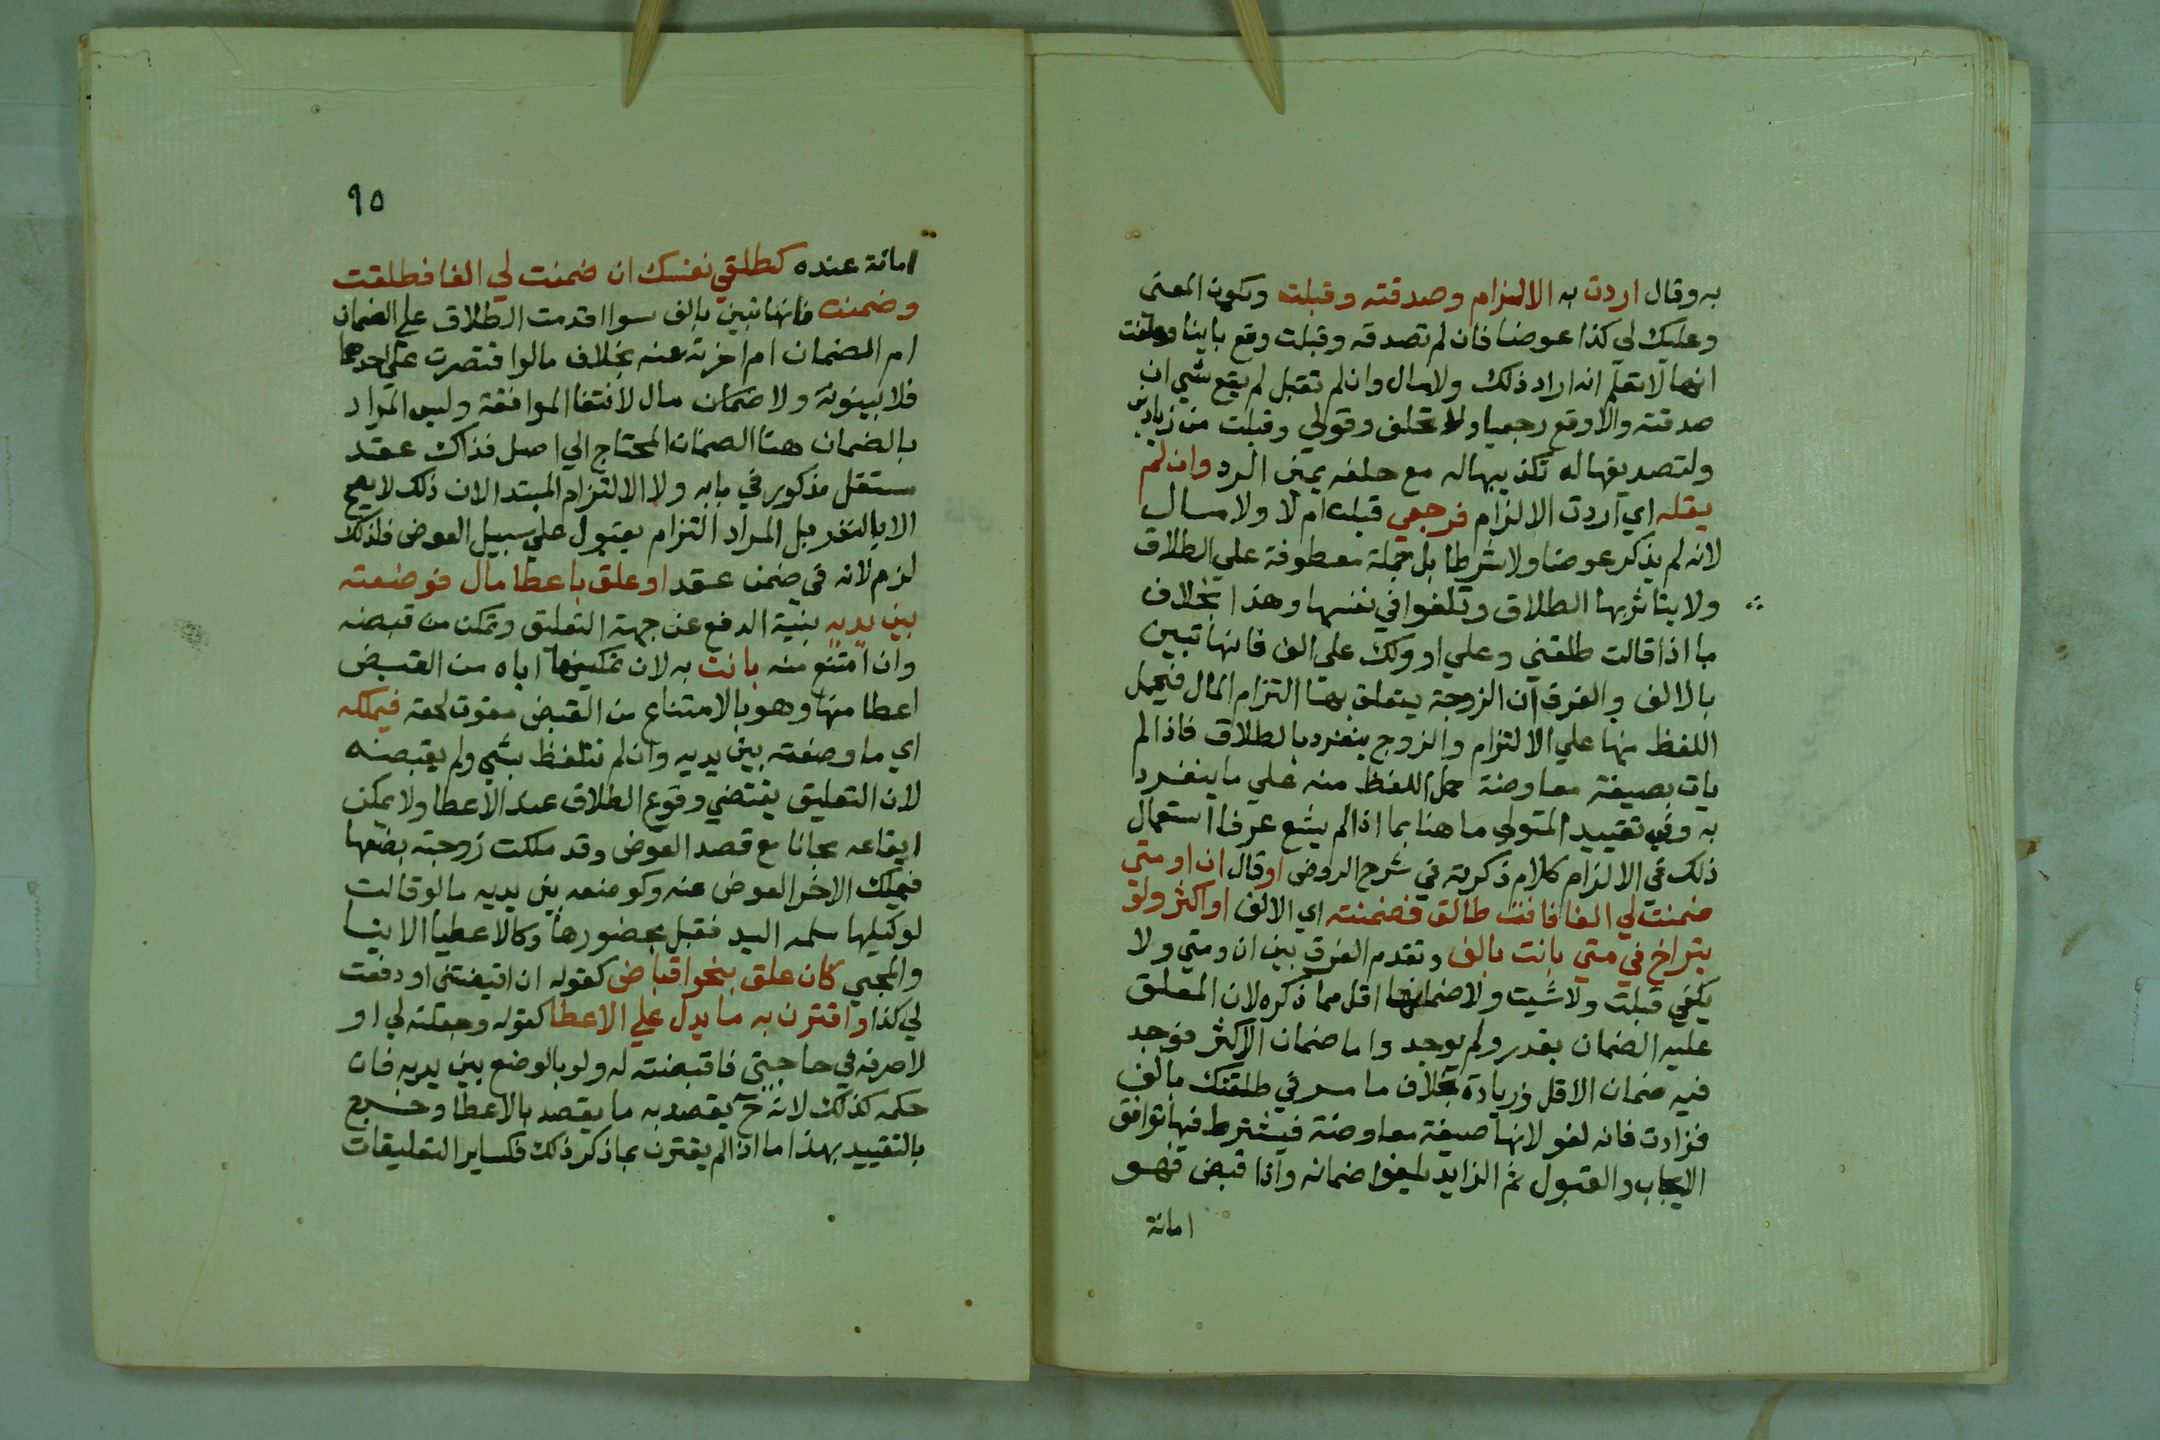 به وقال اردت به الالزام وصدقته وقبلت وتكون المعنى
وعليك لي كذا عوضا فان لم تصدقه وقبلت وقع باينا وحلفت
انها لا تعلم انه اراد ذلك ولا مال وان لم تقبل لم يقع شي ان
صدقته والا وقع رجعيا ولا تحلف وقولي وقبلت من زيادتي
ولتصديقها له تكذيبها له مع حلفه يمين الرد وان لم
يقله اي اردت الالزام فرجعي قبلت ام لا ولا مال
لانه لم يذكر عوضا ولا شرطا بل جملة معطوفة علي الطلاق
ولا يتاثر بها الطلاق وتلغوا في نفسها وهذا بخلاف
ما اذا قالت طلقني وعلي او ولك علي الف فانها تبين
بالالف والفرق ان الزوجة يتعلق بها التزام المال فيحمل
اللفظ منها علي الالتزام والزوج ينفرد بالطلاق فاذا لم
يات بصيغة معاوضة حمل اللفظ منه علي ما ينفرد
به وفي تقييد المتولي ما هنا بما اذا لم يشع عرفا استعمال
ذلك في الالزام كلام ذكرته في شرح الروض او قال ان او متي
ضمنت لي الفا فانت طالق فضمنته اي الالف او اكثر ولو
بتراخ في متي بانت بالف وتقدم الفرق بين ان ومتي ولا
يكفي قبلت ولا شيت ولا ضمانها اقل مما ذكره لان المعلق
عليه الضمان بقدر ولم يوجد واما ضمان الاكثر فوجد
فيه ضمان الاقل وزيادة بخلاف ما مر في طلقتك بالف
فزادت فانه لغو لانها صيغة معاوضة فيشترط فيها توافق
الايجاب والقبول ثم الزايد يلغوا ضمانه واذا قبض فهو
امانة
٩٥
امانة عنده كطلقي نفسك ان ضمنت لي الفا فطلقت
وضمنت فانها تبين بالف سوا اقدمت الطلاق علي الضمان
ام الضمان ام اخرته عنه بخلاف ما لو اقتصرت علي احدهما
فلا بينونة ولا ضمان مال لانتفا الموافقة وليس المراد
بالضمان هنا الضمان المحتاج الي اصل فذاك عقد
مستقل مذكور في بابه ولا الالتزام المبتدا لان ذلك لا يصح
الا بالنذر بل المراد التزام بقبول علي سبيل العوض فلذلك
لزم لانه في ضمن عقد او علق باعطا مال فوضعته
بين يديه بنية الدفع عن جهة التعليق وتمكن من قبضه
وان امتنع منه بانت به لان تمكينها اياه من القبض
اعطا منها وهو بالامتناع من القبض مفوت لحقه فيملكه
اي ما وضعته بين يديه وان لم تتلفظ بشي ولم يقبضه
لان التعليق يقتضي وقوع الطلاق عند الاعطا ولا يمكن
ايقاعه مجانا مع قصد العوض وقد ملكت زوجته بضعها
فيملك الاخر العوض عنه وكوضعه بين يديه ما لو قالت
لوكيلها سلمه اليه فقبل بحضورها وكالاعطا الايتا
والمجي كان علق بنحو اقباض كقوله ان اقبضتني او دفعت
لي كذا واقترن به ما يدل علي الاعطا كقوله وجعلته لي او
لاصرفه في حاجتي فاقبضته له ولو بالوضع بين يديه فان
حكمه كذلك لانه ح يقصد به ما يقصد بالاعطا وخرج
بالتقييد بهذا ما اذا لم يقترن بما ذكر ذلك فكساير التعليقات